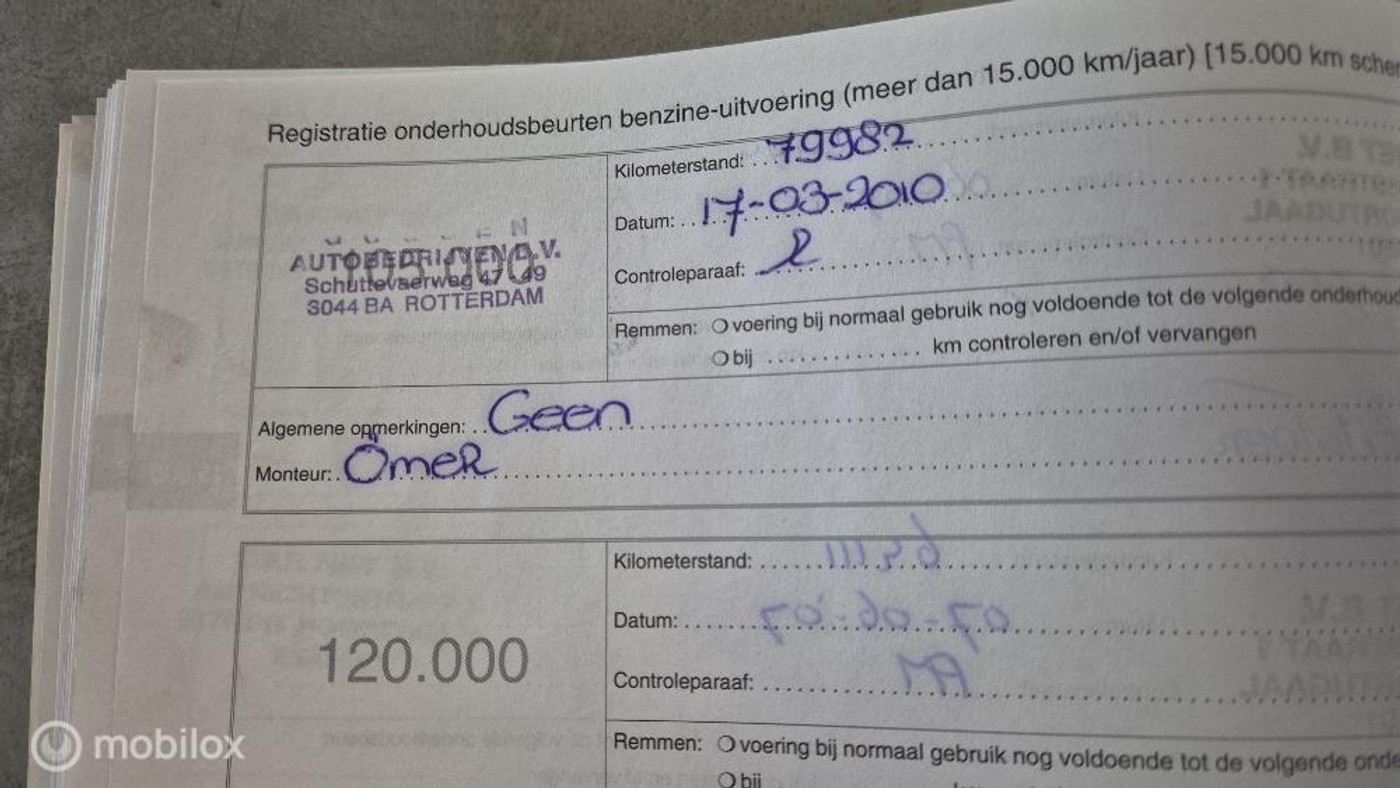 Registratie onderhoudsbeurten benzine-uitvoering (meer dan 15.000 km/jaar) [15.000 km
Kilometerstand: 79982
Datum: 17-03-2010
Controleparaaf:
105.000
AUTOBEDRIJVEN B.V.
Schuttevaerweg 47 - 49
3044 BA ROTTERDAM
Remmen: voering bij normaal gebruik nog voldoende tot de volgende
bij ............ km controleren en/of vervangen
Algemene opmerkingen: Geen
Monteur: Ömer
120.000
Kilometerstand:
Datum:
Controleparaaf:
Remmen: voering bij normaal gebruik nog voldoende tot de volgende
bij
mobilox